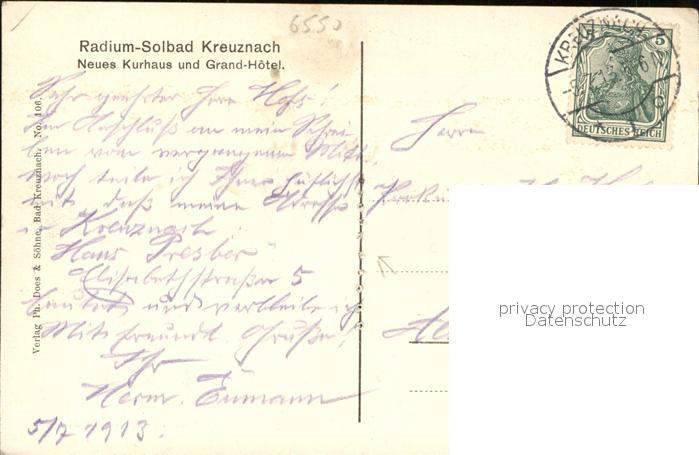 6550
Radium-Solbad Kreuznach
Neues Kurhaus und Grand-Hôtel.
Sehr geehrter Herr
Im Anschluß an mein Schrei-
ben vom vergangenen Mitt-
woch teile ich Ihnen höflichst
mit, daß meine Adresse
in Kreuznach:
"Haus Presber"
Elisabethstraße 5
lautet und verbleibe ich
Mit freundl. Grüßen!
Ihr
Herm. Eumann
5/7 1913.
Verlag Ph. Does & Söhne, Bad Kreuznach. No. 106.
Herrn
KREUZNACH
5
DEUTSCHES REICH
privacy protection
Datenschutz